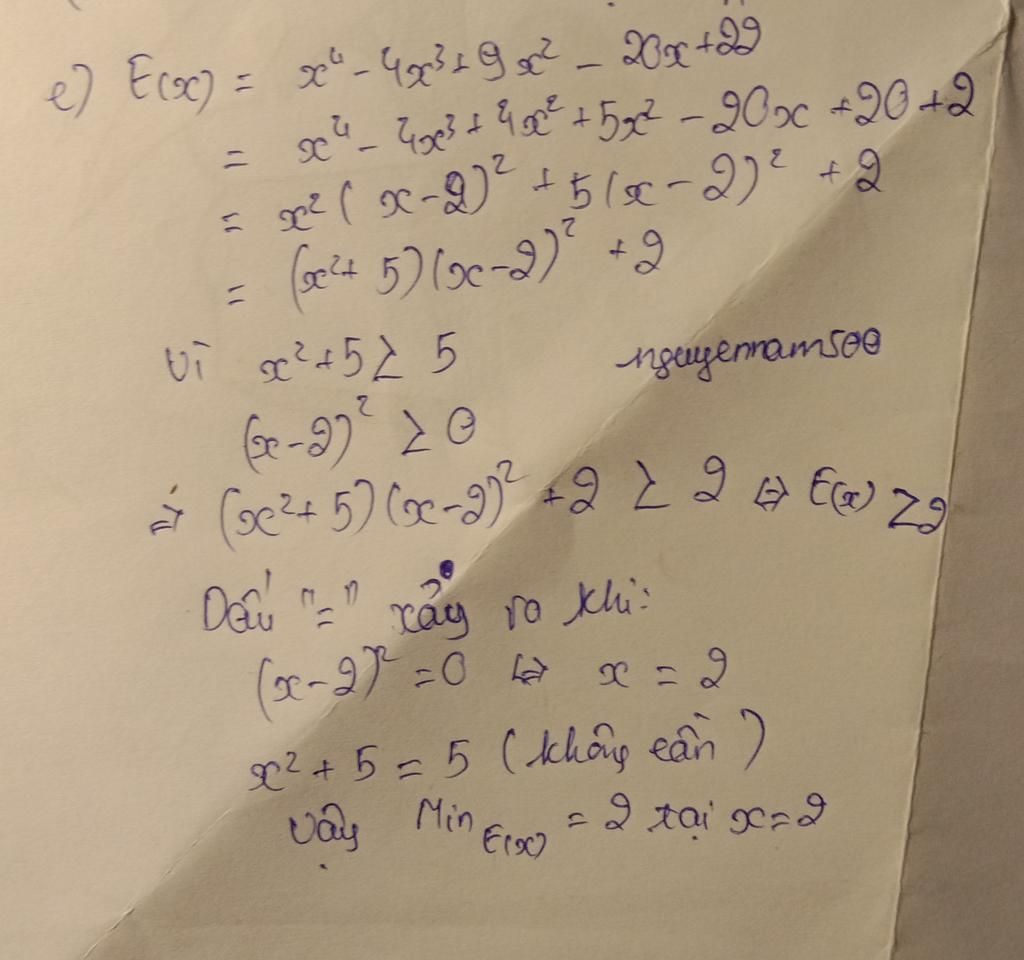 e) E(x) = x⁴ - 4x³ + 9x² - 20x + 22
= x⁴ - 4x³ + 4x² + 5x² - 20x + 20 + 2
= x² (x - 2)² + 5(x - 2)² + 2
= (x² + 5)(x - 2)² + 2
Vì x² + 5 ≥ 5
nguyennam500
(x - 2)² ≥ 0
⇒ (x² + 5)(x - 2)² + 2 ≥ 2 ⇔ E(x) ≥ 2
Dấu "=" xảy ra khi:
(x - 2)² = 0 ⇔ x = 2
x² + 5 = 5 (không cần)
Vậy Min E(x) = 2 tại x = 2